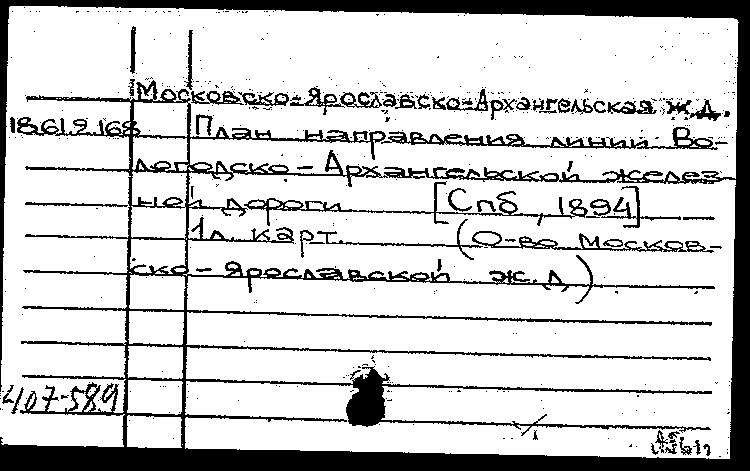 Московско-Ярославско-Архангельская ж.д.
18.61.9.168 План направления линии Во-
логодско-Архангельской желез-
ной дороги [Спб, 1894]
1л. карт. (О-во Москов-
ско-Ярославской ж.д.)
407-589